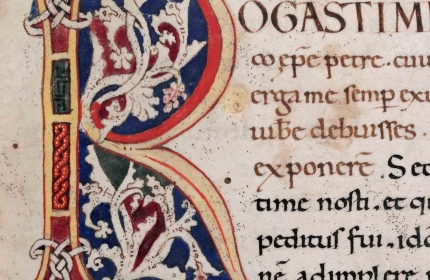 ROGASTI M
coep̄e petre. cuiu
erga me semp ex
debuisses .
exponerē. Set
time nosti. et qu
peditus fui. id
nē adimplere